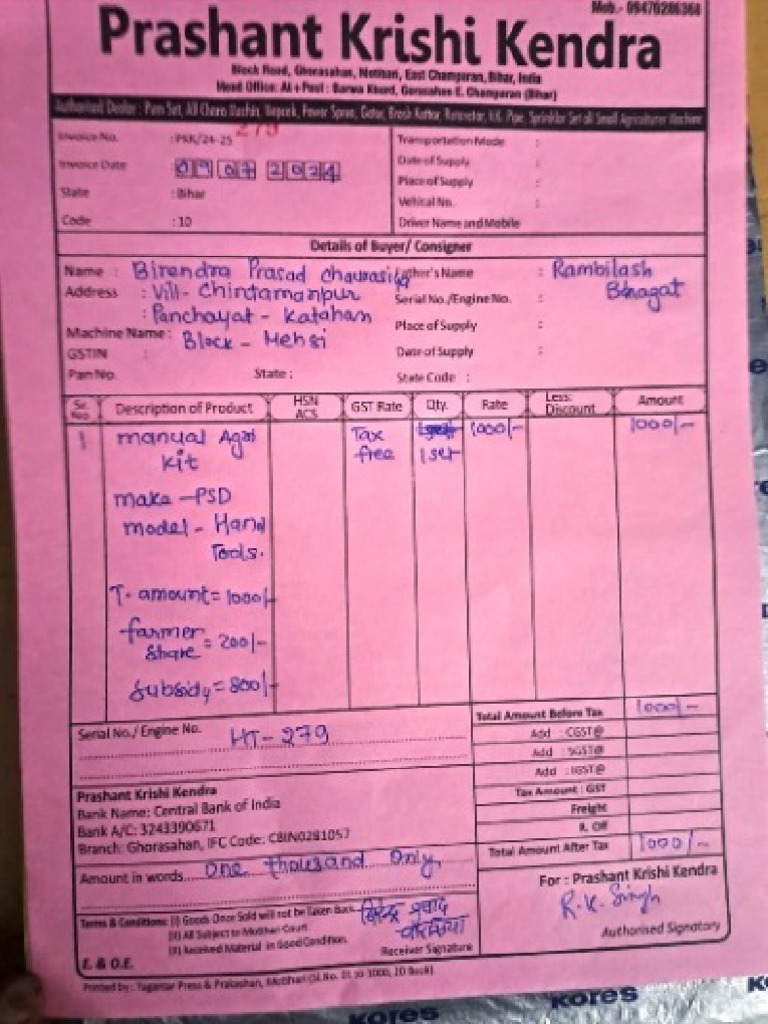 Mob.- 09470286368
Prashant Krishi Kendra
Block Road, Ghorasahan, Motihari, East Champaran, Bihar, India
Head Office: At + Post : Barwa Khurd, Gorasahan E. Champaran (Bihar)
Authorised Dealer : Pum Set, All Chara Machin, Power Spray, Brush Kattar, H.K. Pipe, Sprinklar Set all Small Agriculture Machine
Invoice No. : PKK/24-25 279
Transportation Mode :
Invoice Date 09 07 2024
Date of Supply :
Place of Supply :
State : Bihar
Vehical No. :
Code : 10
Driver Name and Mobile
Details of Buyer/ Consigner
Name : Birendra Prasad Chaurasiya
Father's Name : Rambilash Bhagat
Address : Vill- Chintamanpur
Serial No./Engine No. :
: Panchayat - Kataham
Place of Supply :
Machine Name : Block - Mehsi
GSTIN :
Date of Supply :
Pan No. State : State Code :
Sr. No. Description of Product HSN ACS GST Rate Qty. Rate Less: Discount Amount
1 manual Agri kit Tax free 1 set 1000/- 1000/-
make - PSD
model - Hand
Tools.
T. amount = 1000/-
farmer share = 200/-
subsidy = 800/-
Serial No./ Engine No. HT-279
Total Amount Before Tax 1000/-
Add : CGST@
Add : SGST@
Add : IGST@
Tax Amount : GST
Freight
R. Off
Total Amount After Tax 1000/-
Prashant Krishi Kendra
Bank Name: Central Bank of India
Bank A/C: 3243390671
Branch: Ghorasahan, IFC Code: CBIN0281057
Amount in words One thousand Only
For : Prashant Krishi Kendra
R.K. Singh
Authorised Signatory
Terms & Conditions: (I) Goods Once Sold will not be Taken Back
(II) All Subject to Motihari Court
(II) Received Material in Good Condition.
बिरेन्द्र प्रसाद
चौरसिया
Receiver Signature
E. & O.E.
Printed by : Yugantar Press & Prakashan, Motihari (Sl.No. 01 to 1000, 20 Book)
KORES
KORES